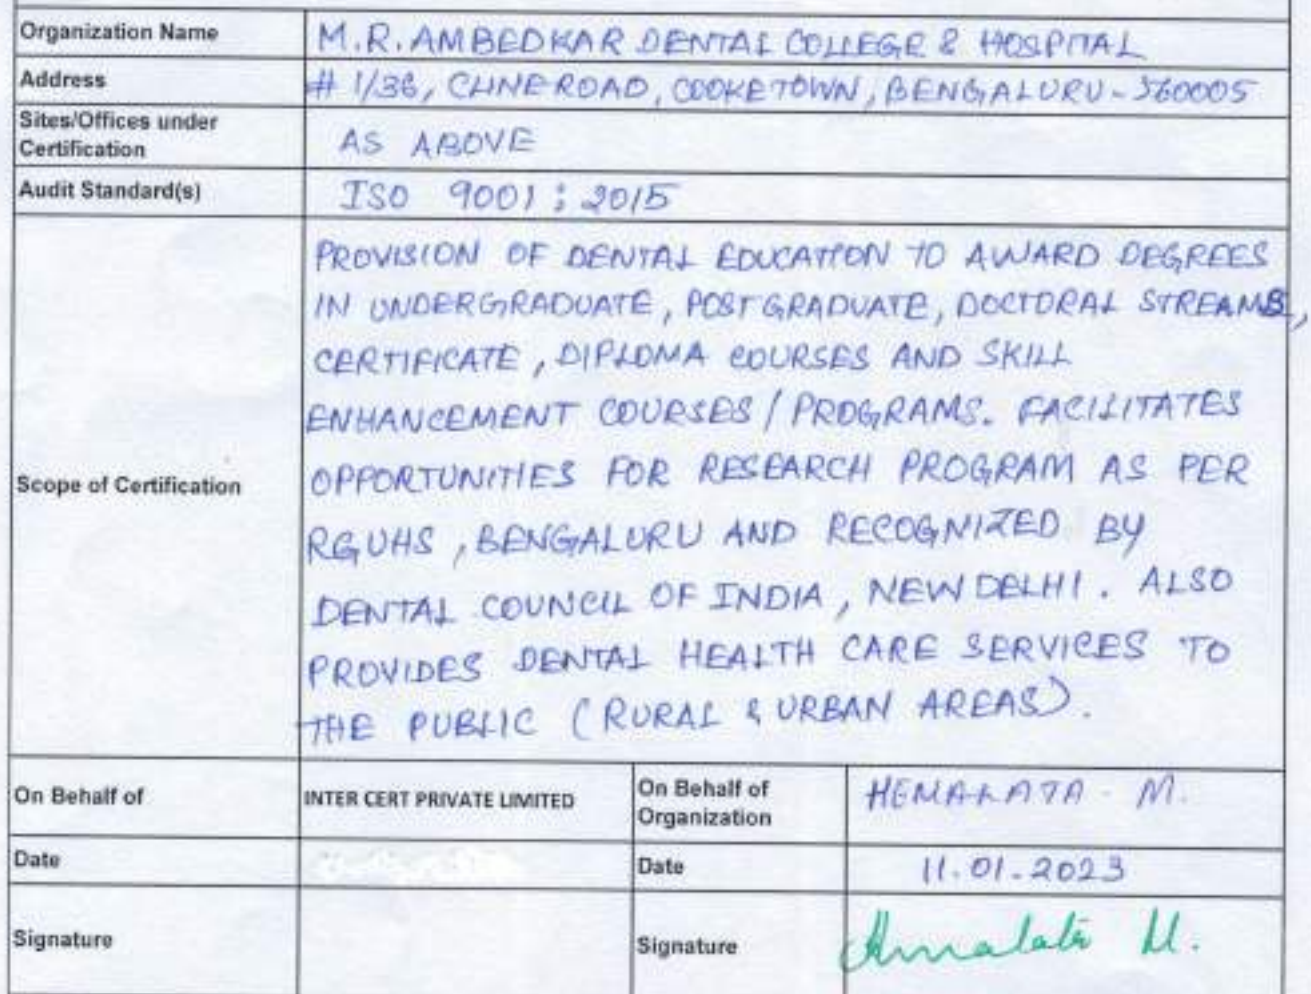 Organization Name M.R. AMBEDKAR DENTAL COLLEGE & HOSPITAL
Address # 1/36, CLINE ROAD, COOKETOWN, BENGALURU - 560005
Sites/Offices under
Certification AS ABOVE
Audit Standard(s) ISO 9001 : 2015
Scope of Certification
PROVISION OF DENTAL EDUCATION TO AWARD DEGREES
IN UNDERGRADUATE, POSTGRADUATE, DOCTORAL STREAMS,
CERTIFICATE, DIPLOMA COURSES AND SKILL
ENHANCEMENT COURSES / PROGRAMS. FACILITATES
OPPORTUNITIES FOR RESEARCH PROGRAM AS PER
RGUHS, BENGALURU AND RECOGNIZED BY
DENTAL COUNCIL OF INDIA, NEW DELHI. ALSO
PROVIDES DENTAL HEALTH CARE SERVICES TO
THE PUBLIC (RURAL & URBAN AREAS).
On Behalf of INTER CERT PRIVATE LIMITED On Behalf of
Organization HEMALATA - M.
Date Date 11.01.2023
Signature Signature Hemalata M.